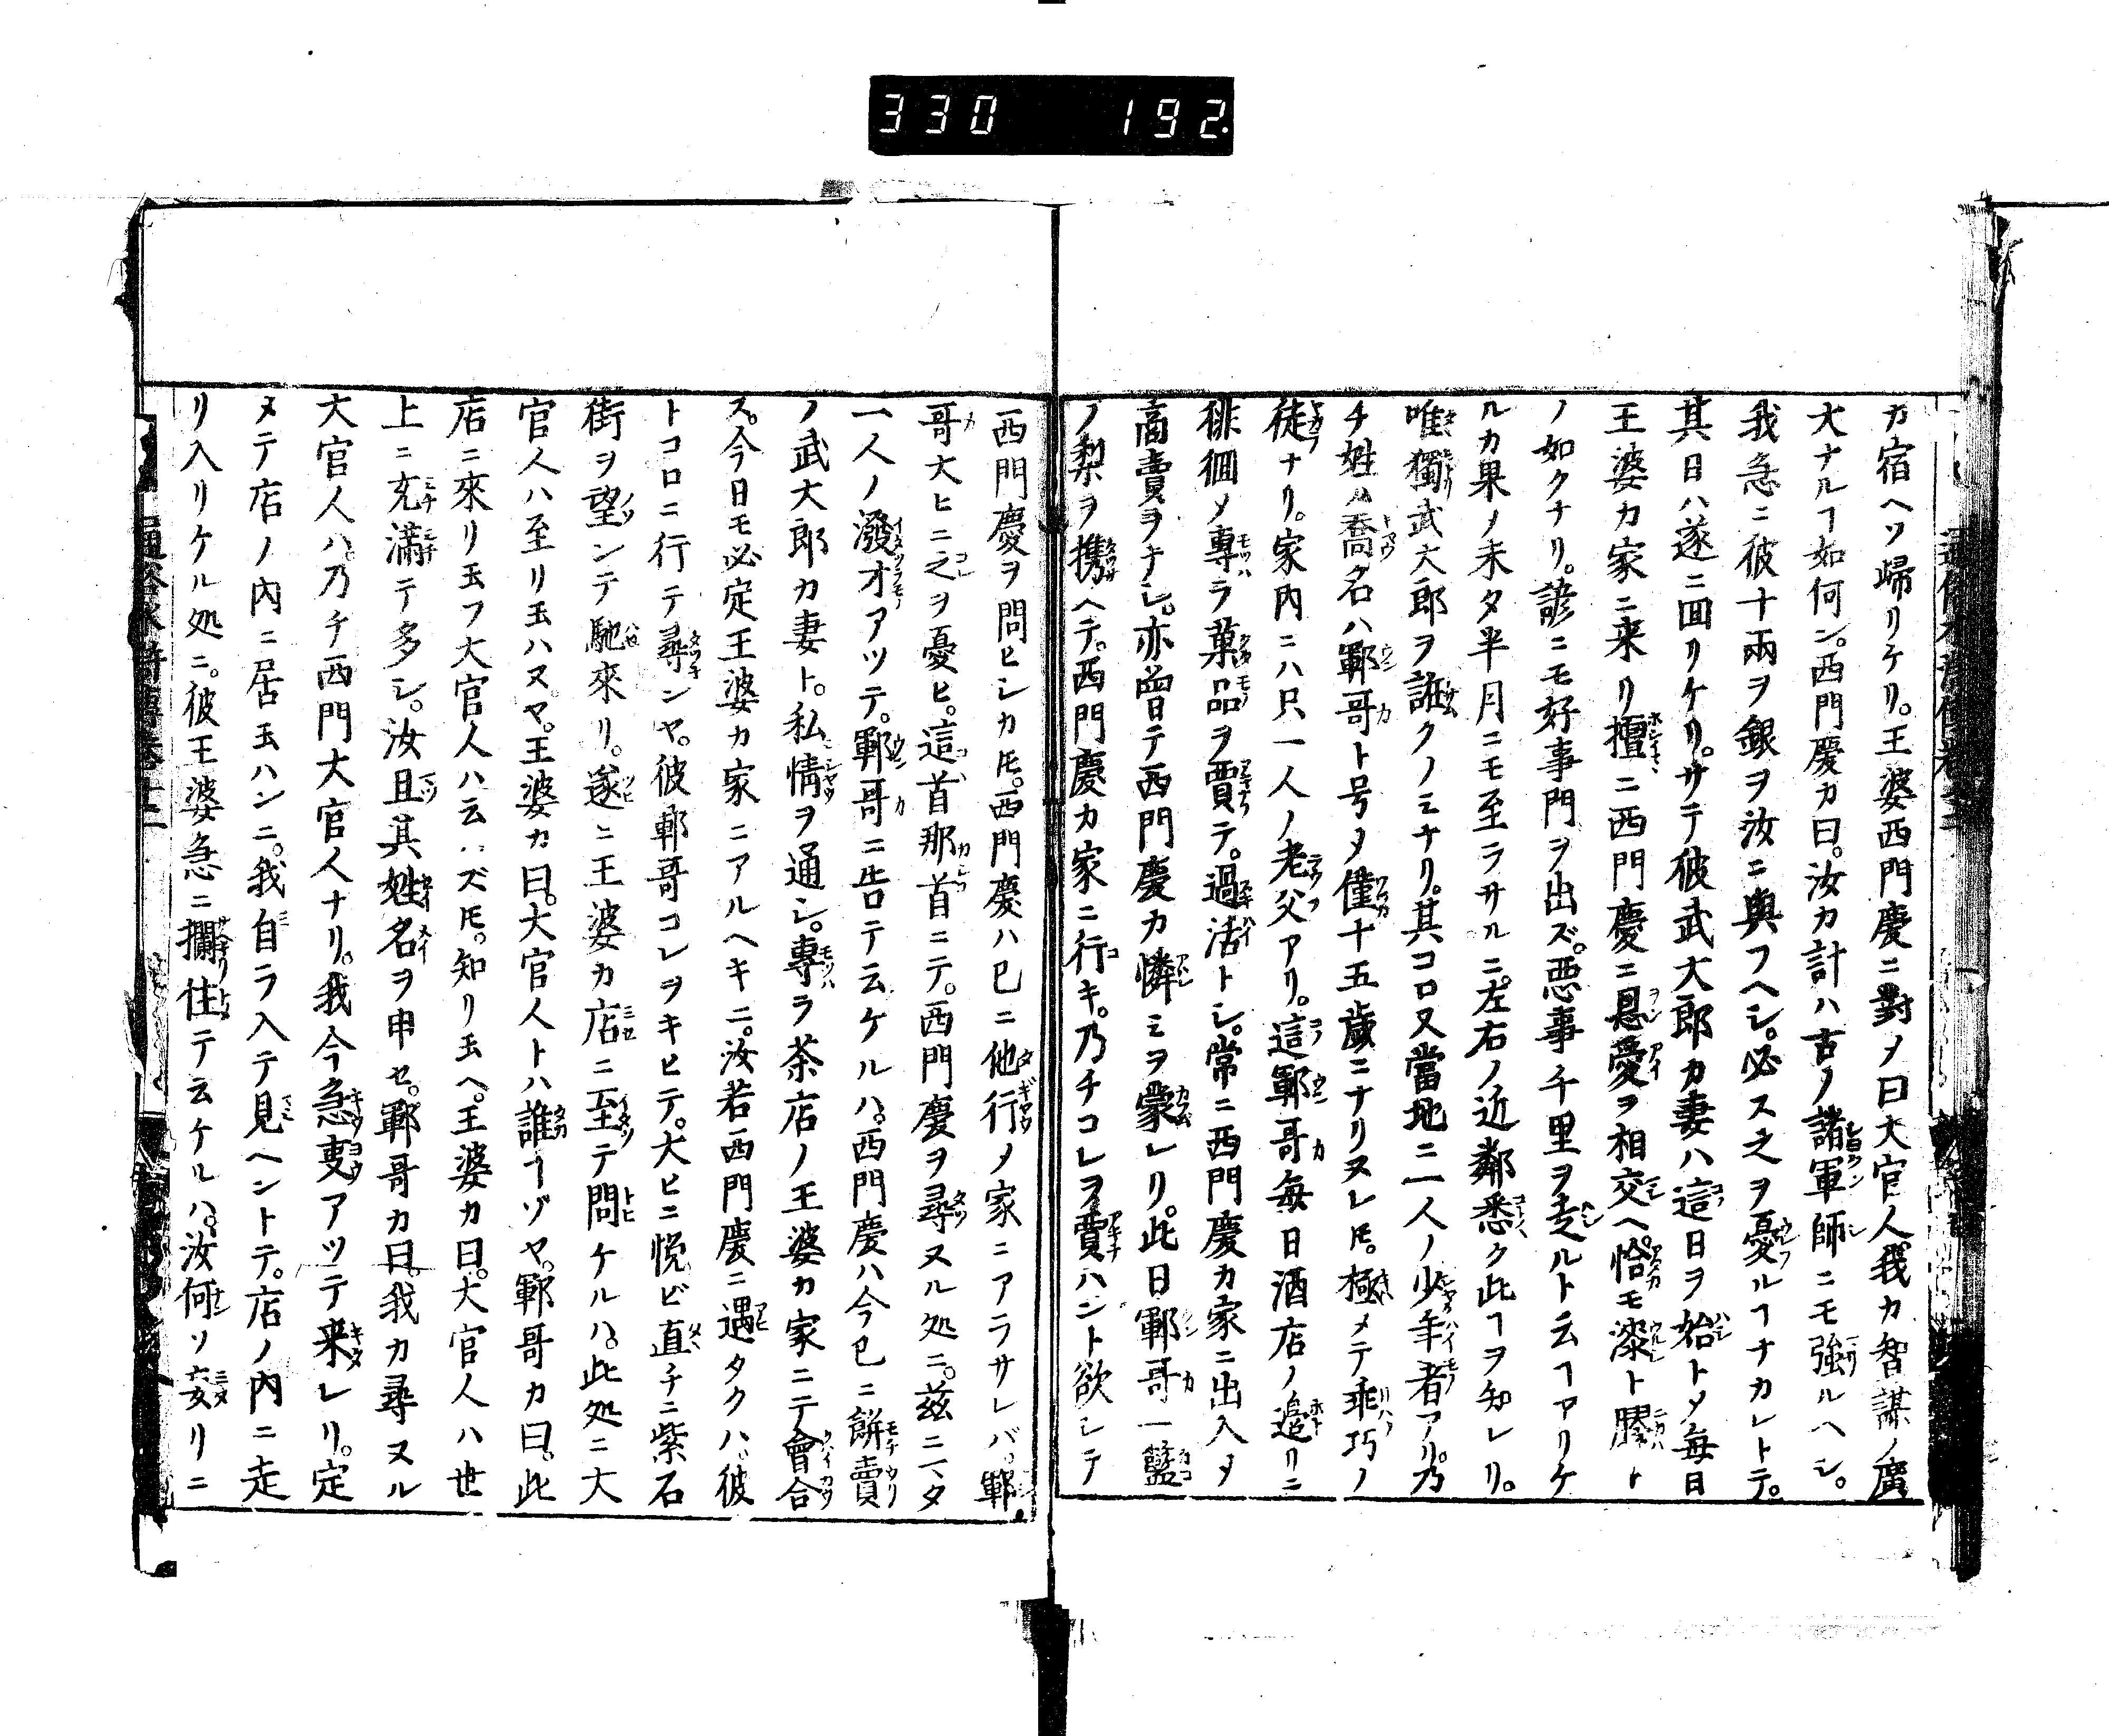 330 192.
カ宿ヘソ帰リケリ。王婆西門慶ニ對メ曰大官人我カ智謀ノ廣
大ナルヿ如何ン。西門慶カ曰。汝カ計ハ古ノ諸軍師ニモ強ルヘシ。
我急ニ彼十兩ヲ銀ヲ汝ニ與フヘシ。必ス之ヲ憂ルヿナカレトテ。
其日ハ遂ニ回リケリ。サテ彼武大郎カ妻ハ這日ヲ始トメ毎日
王婆カ家ニ来リ擅ニ西門慶ニ恩愛ヲ相交ヘ。恰モ漆ト膠ト
ノ如クナリ。諺ニモ好事門ヲ出ズ。悪事千里ヲ走ルト云ヿアリケ
ルカ果ノ未タ半月ニモ至ラサルニ。左右ノ近鄰悉ク此ヿヲ知レリ。
唯獨武大郎ヲ誑クノミナリ。其コロ又當地ニ一人ノ少年者アリ。乃
チ姓ハ喬名ハ鄆哥ト号メ僅十五歳ニナリヌレ𪜈。極メテ乖巧ノ
徒ナリ。家内ニハ只一人ノ老父アリ。這鄆哥毎日酒店ノ邉リニ
徘徊メ專ラ菓品ヲ賣テ。過活トシ。常ニ西門慶カ家ニ出入メ
商賣ヲナシ。亦曽テ西門慶カ憐ミヲ蒙レリ。此日鄆哥一籃
ノ梨ヲ携ヘテ。西門慶カ家ニ行キ。乃チコレヲ賣ハント欲シテ
西門慶ヲ問ヒシカ𪜈。西門慶ハ已ニ他行メ家ニアラサレバ。鄆
哥大ヒニ之ヲ憂ヒ。這首那首ニテ。西門慶ヲ尋ヌル処ニ。茲ニ又タ
一人ノ潑才アツテ。鄆哥ニ告テ云ケルハ。西門慶ハ今已ニ餅賣
ノ武大郎カ妻ト。私情ヲ通シ。專ラ茶店ノ王婆カ家ニテ會合
ス。今日モ必定王婆カ家ニアルヘキニ。汝若西門慶ニ遇タクハ。彼
トコロニ行テ尋ンヤ。彼鄆哥コレヲキヒテ。大ヒニ悦ビ直チニ紫石
街ヲ望ンテ馳來リ。遂ニ王婆カ店ニ至テ問ケルハ。此処ニ大
官人ハ至リ玉ハヌヤ。王婆カ曰。大官人トハ誰ヿゾヤ。鄆哥カ曰。此
店ニ來リ玉フ大官人ハ云ハズ𪜈。知リ玉ヘ。王婆カ曰。大官人ハ世
上ニ充滿テ多シ。汝且其姓名ヲ申セ。鄆哥カ曰。我カ尋ヌル
大官人ハ。乃チ西門大官人ナリ。我今急要アツテ来レリ。定
メテ店ノ内ニ居玉ハンニ。我自ラ入テ見ヘントテ。店ノ内ニ走
リ入リケル処ニ。彼王婆急ニ攔住テ云ケルハ。汝何ソ妄リニ